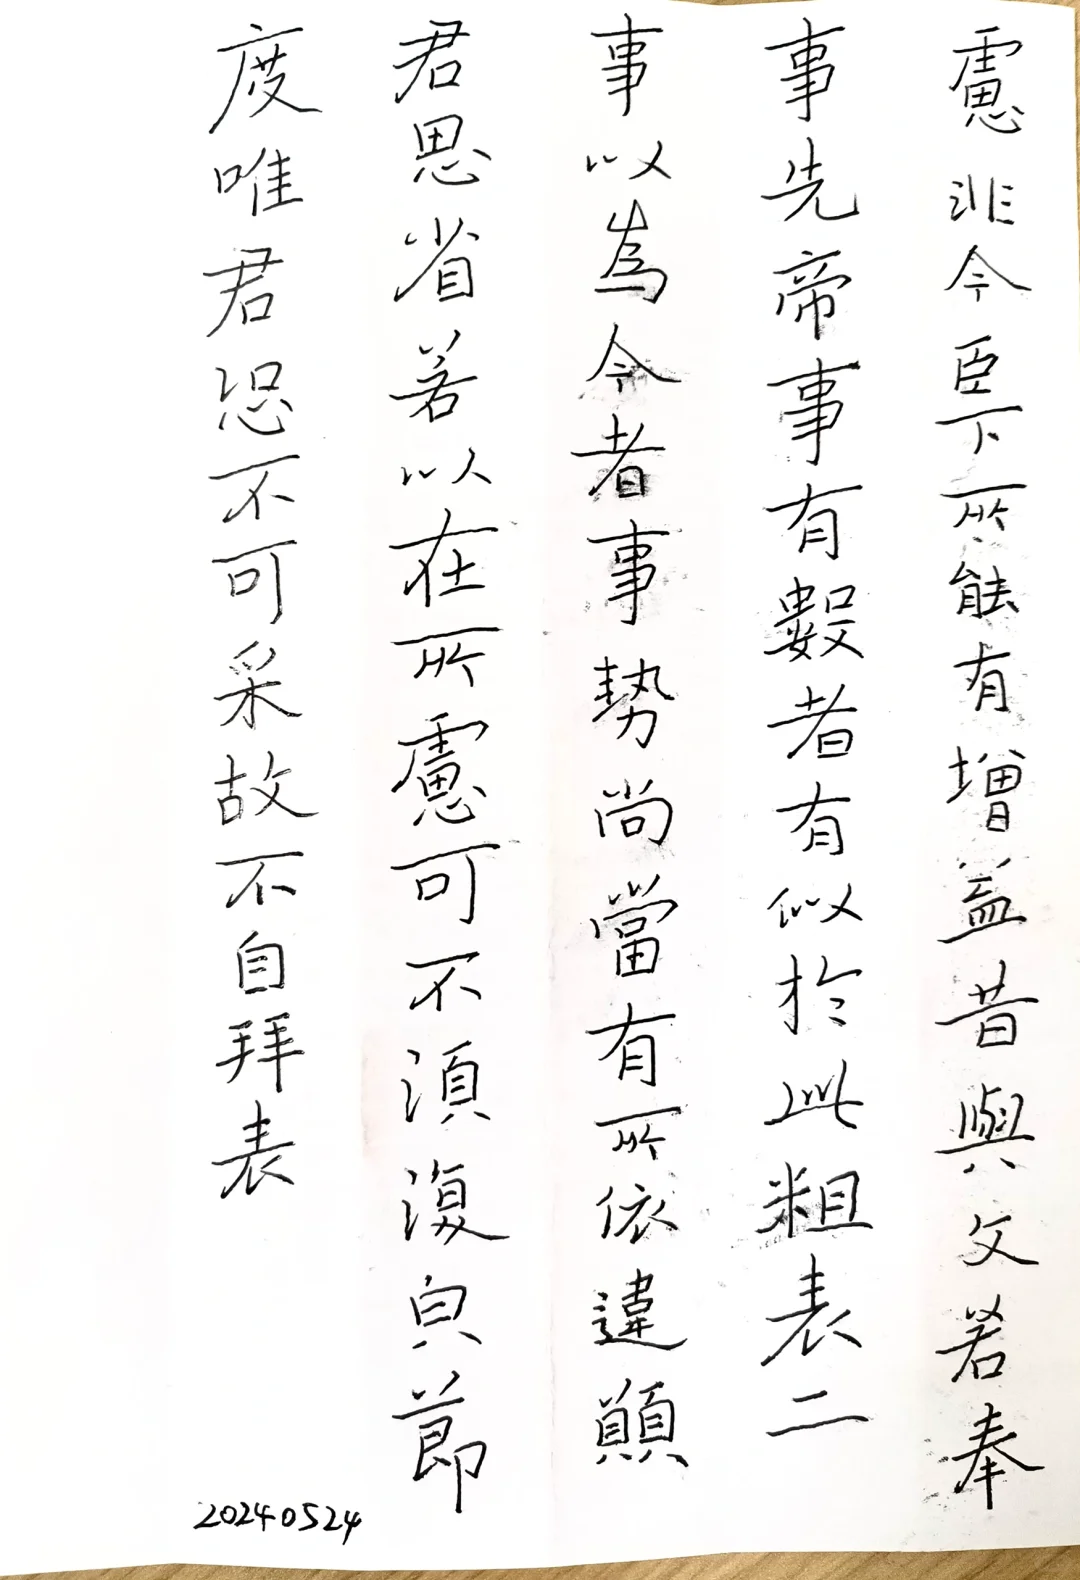 慮非今臣下所能有增益昔與文若奉
事先帝事有數者有似於此粗表二
事以為今者事勢尚當有所依違願
君思省若以在所慮可不須復皃節
度唯君恐不可采故不自拜表
20240524